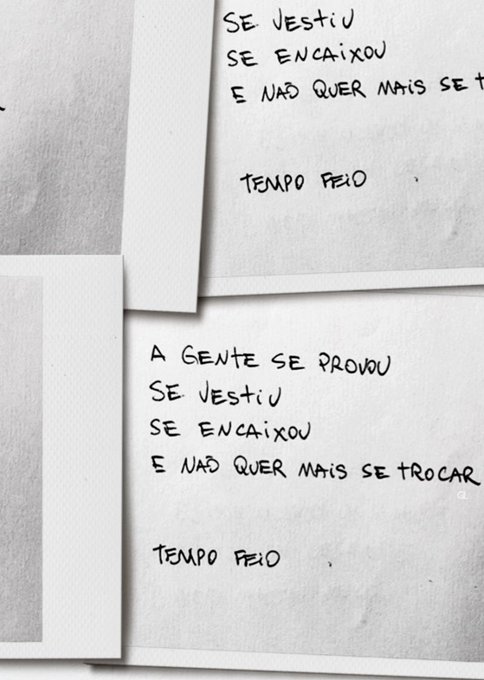 SE VESTIU
SE ENCAIXOU
E NÃO QUER MAIS SE T
TEMPO FEIO
A GENTE SE PROVOU
SE VESTIU
SE ENCAIXOU
E NÃO QUER MAIS SE TROCAR
TEMPO FEIO